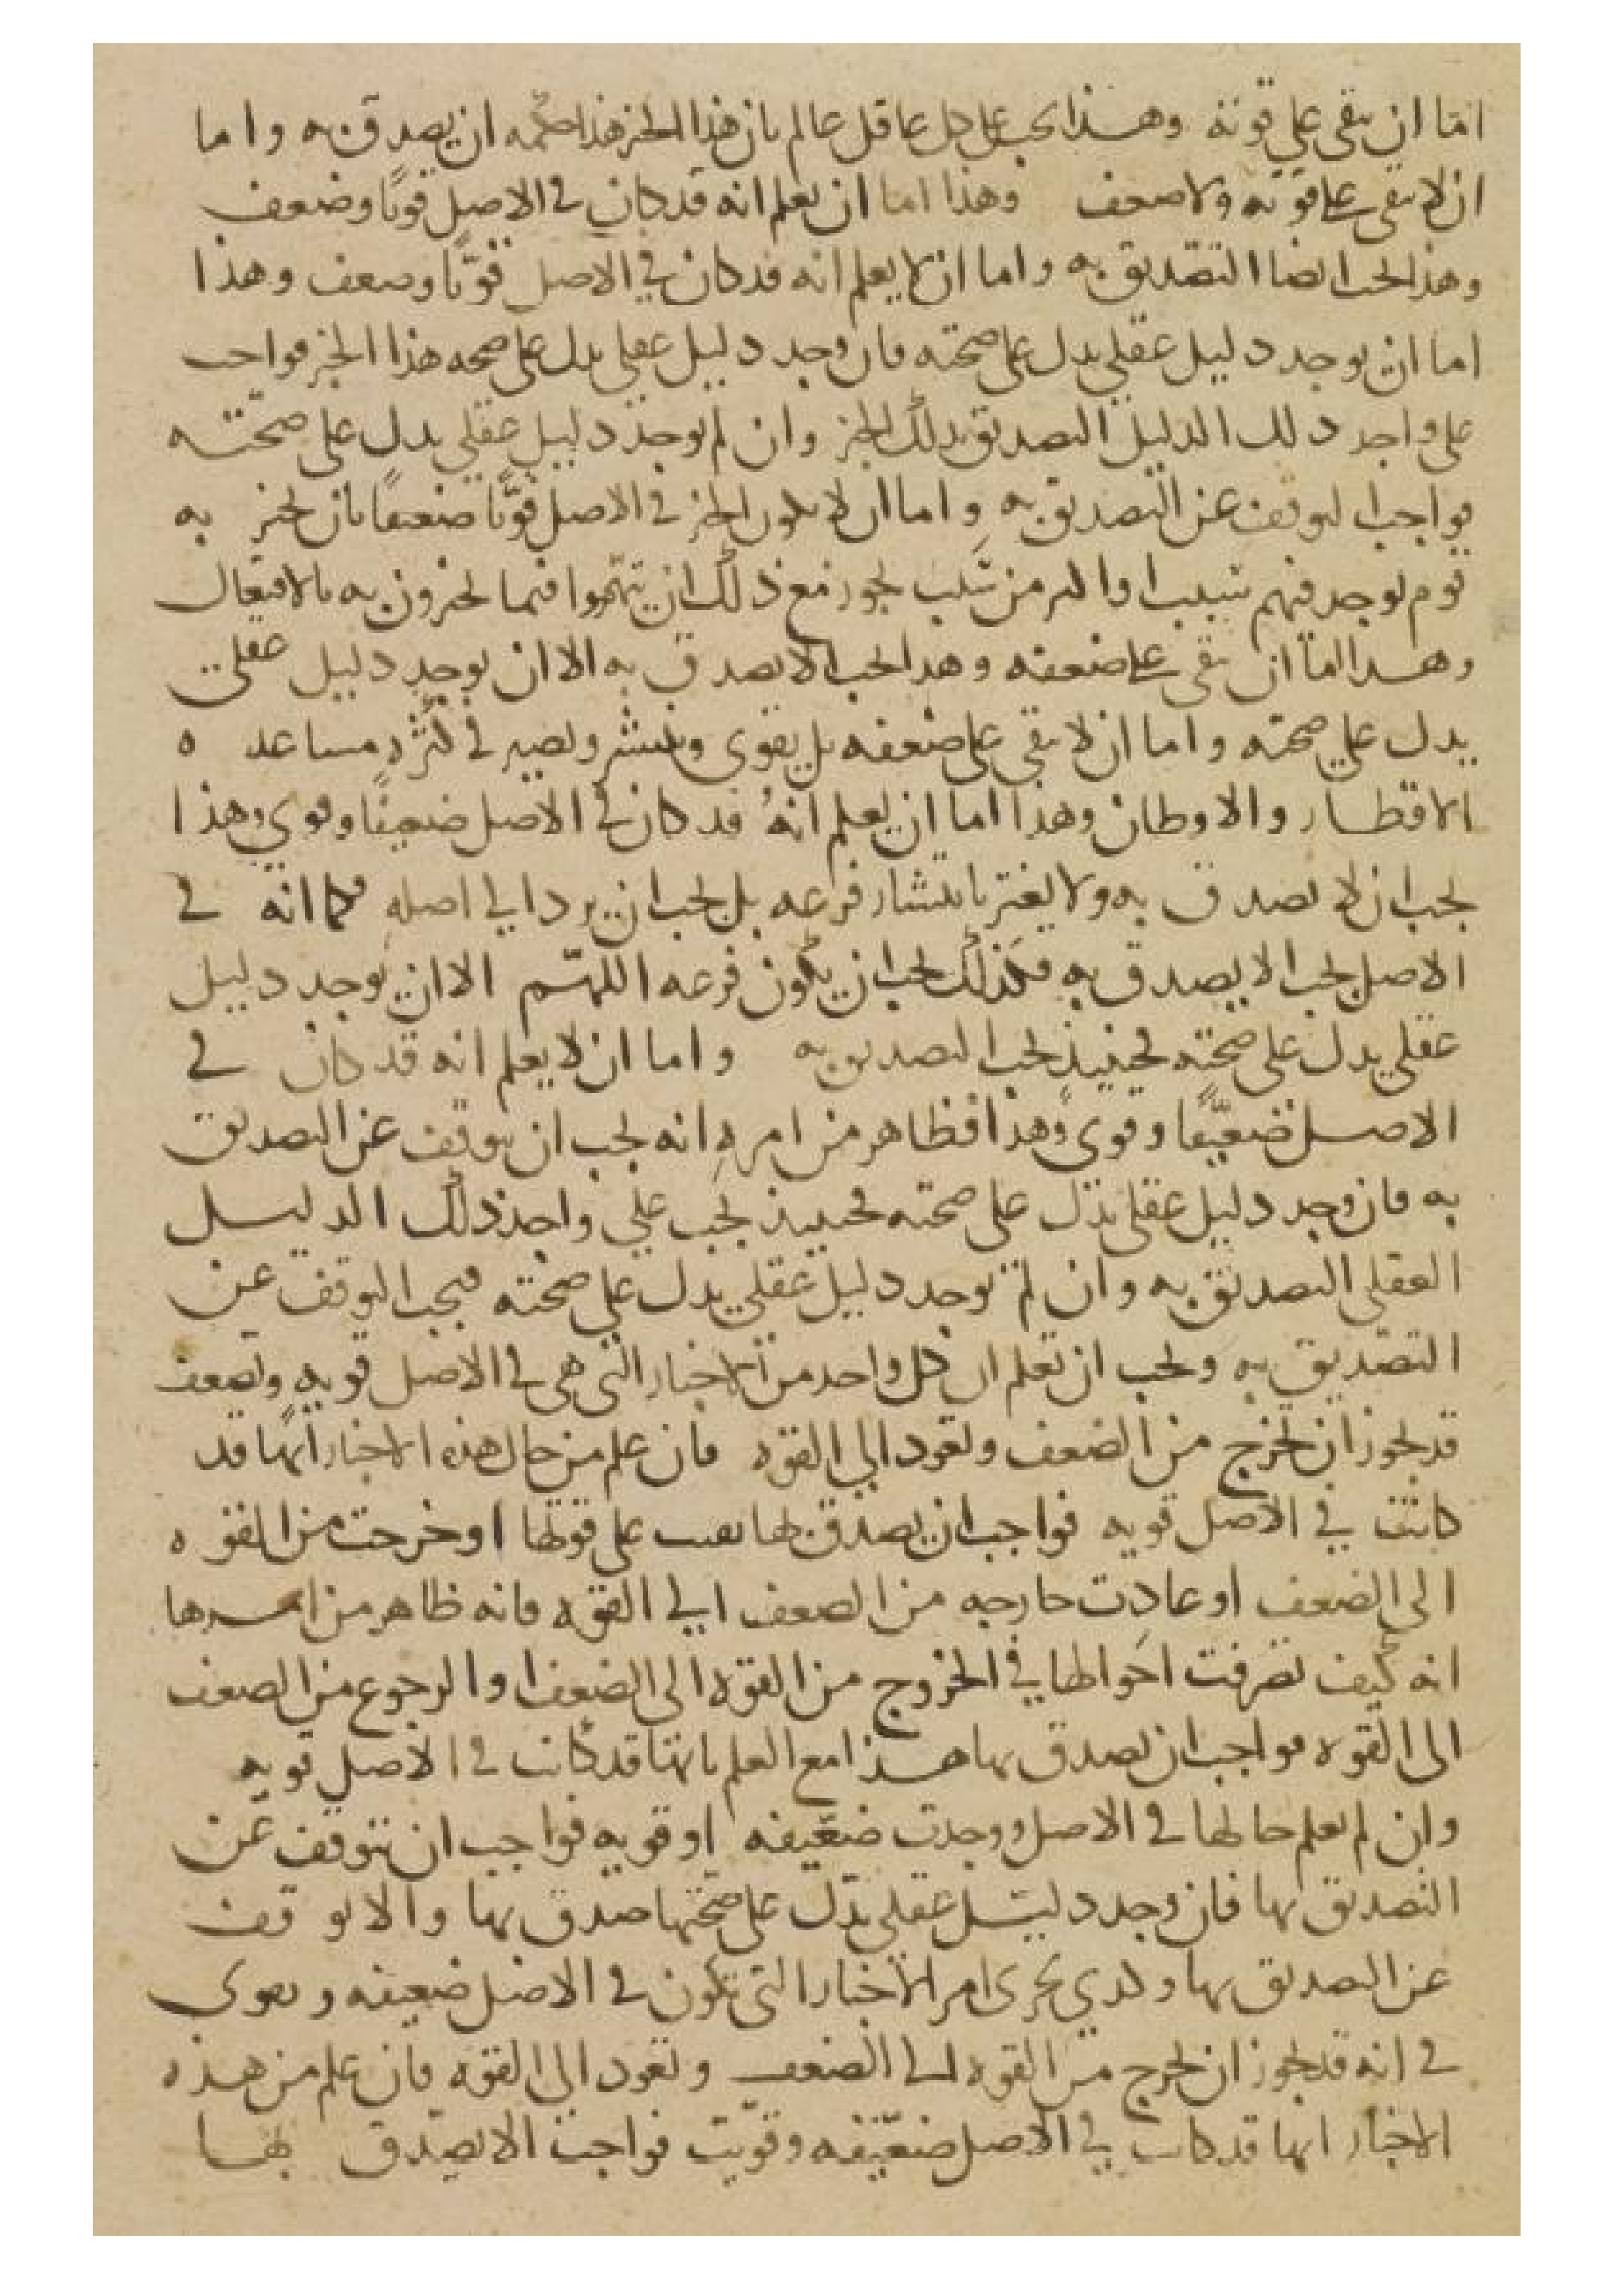 اما ان يبقى على قوته وهذا يجب على كل عاقل عالم بان هذا الخبر هذا حكمه ان يصدق به واما
ان لا يبقى على قوته ولا ضعف وهذا اما ان يعلم انه قد كان في الاصل قويًا وضعف
وهذا يجب ايضا التصديق به واما ان لا يعلم انه قد كان في الاصل قويًّا وضعف وهذا
اما ان يوجد دليل عقلي يدل على صحته فان وجد دليل عقلي يدل على صحه هذا الخبر فواجب
على واجد ذلك الدليل التصديق بذلك الخبر وان لم يوجد دليل عقلي يدل على صحته
فواجب التوقف عن التصديق به واما ان لا يكون الخبر في الاصل قويًّا ضعيفًا بان يخبر به
قوم يوجد فيهم سبب او اكثر من سبب يجوز مع ذلك ان يتهموا فيما يخبرون به بالافتعال
وهذا اما ان يبقى على ضعفه وهذا يجب الا يصدق به الا ان يوجد دليل عقلي
يدل على صحته واما ان لا يبقى على ضعفه بل يقوى وينتشر ويصير في كثره مساعده
الاقطار والاوطان وهذا اما ان يعلم انهُ قد كان في الاصل ضعيفًا وقوي وهذا
يجب ان لا يصدق به ولا يغتر بانتشار فرعه بل يجب ان يرد الي اصله فكما انه في
الاصل يجب الا يصدق به فكذلك يجب ان يكون فرعه اللهم الا ان يوجد دليل
عقلي يدل على صحته فحينيذٍ يجب التصديق به واما ان لا يعلم انه قد كان في
الاصل ضعيفًا وقوى وهذا فظاهر من امرهِ انه يجب ان يتوقف عن التصديق
به فان وجد دليل عقلي يدل على صحته فحينيذ يجب علي واجد ذلك الدليل
العقلي التصديق به وان لم يوجد دليل عقلي يدل على صحته فيجب التوقف عن
التصديق به ويجب ان تعلم ان كل واحد من الاخبار التي هي في الاصل قويه وتضعف
قد يجوز ان يخرج من الضعف وتعود الي القوه فان علم من حال هذه الاخبار انها قد
كانت في الاصل قويه فواجب ان يصدق بها بقيت على قوتها او خرجت من القوه
الى الضعف او عادت خارجه من الضعف الي القوه فانه ظاهر من امرها
انه كيف تصرفت احوالها في الخروج من القوه الى الضعف او الرجوع من الضعف
الى القوه فواجب ان يصدق بها هذا مع العلم بانها قد كانت في الاصل قويه
وان لم يعلم حالها في الاصل ووجدت ضعيفه او قويه فواجب ان نتوقف عن
التصديق بها فان وجد دليل عقلي يدل على صحتها صدق بها والا توقف
عن التصديق بها وكذي يجرى امر الاخبار التي تكون في الاصل ضعيفه وتقوى
في انه قد يجوز ان يخرج من القوه الى الضعف وتعود الى القوه فان علم من هذه
الاخبار انها قد كانت في الاصل ضعيفه وقويت فواجب الا يصدق بها